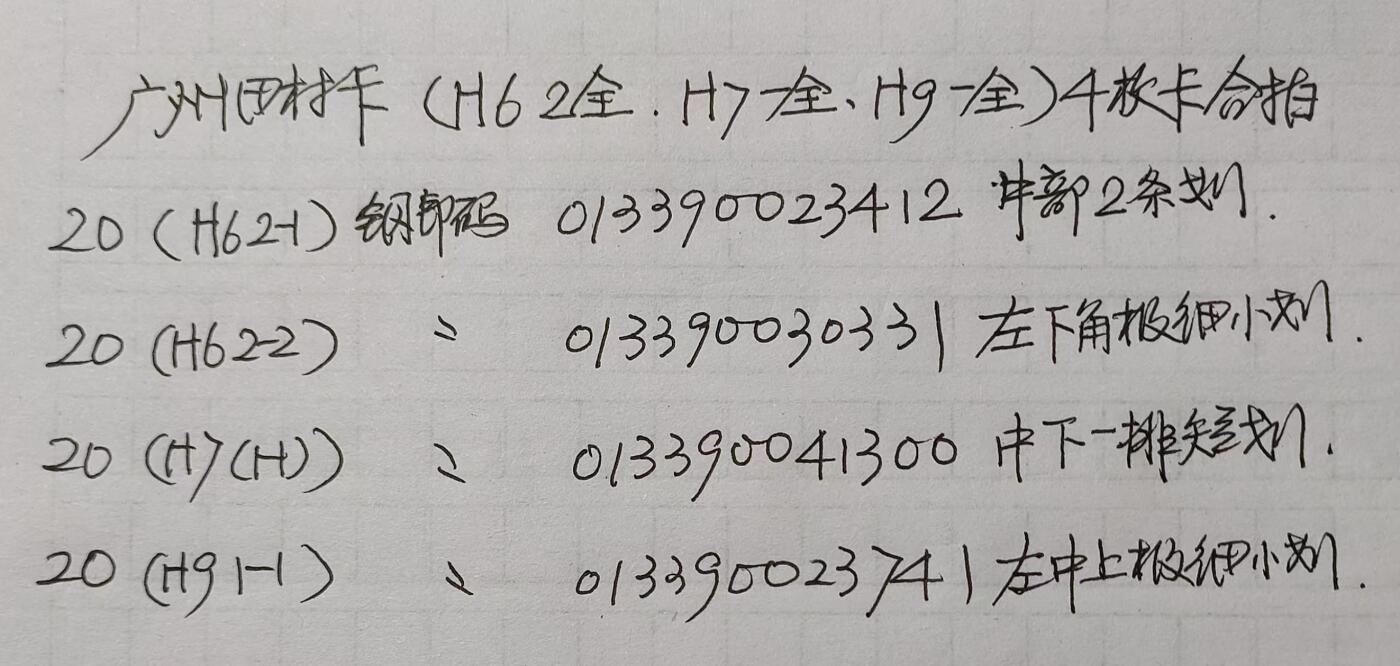 广州田村卡(H6 2全.H7一全、H9一全)4枚卡合拍
20(H6 2-1)钢印码 013390023412 中部2条划.
20(H6 2-2) 〃 013390030331 左下角极细小划.
20(H7(1-1)) 〃 013390041300 中下一排短划.
20(H9 1-1) 〃 013390023741 左中上极细小划.